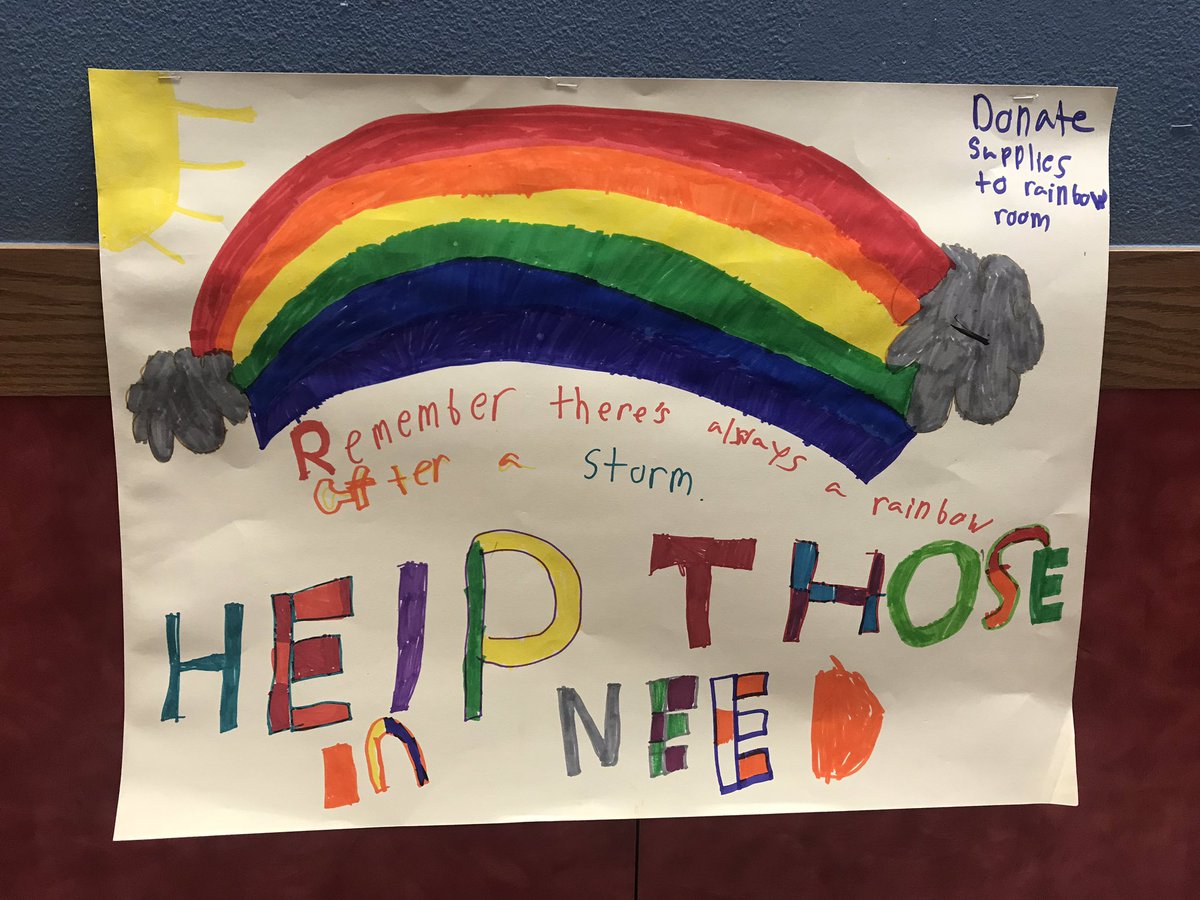 Donate
supplies
to rainbow
room
Remember there's always a rainbow
after a storm.
HElP THOSE
in NEED